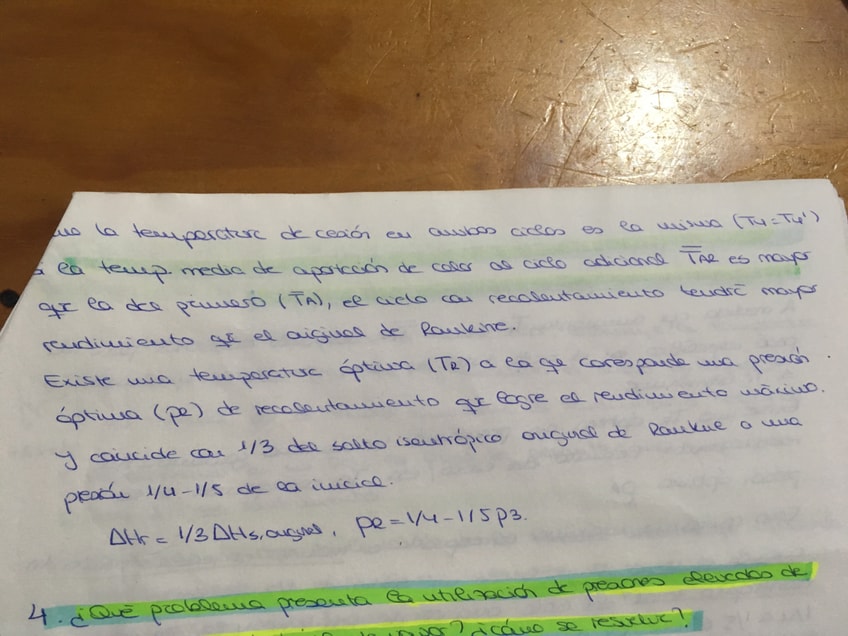 la temperatura de cesión en ambos ciclos es la misma (T4=T4')
la temp. media de aparición de calor al ciclo adicional T̅AR es mayor
que la del primero (T̅A), el ciclo con recalentamiento tendrá mayor
rendimiento qe el original de Rankine.
Existe una temperatura óptima (TR) a la qe corresponde una presión
óptima (pR) de recalentamiento que logre el rendimiento máximo.
y coincide con 1/3 del salto isentrópico original de Rankine o una
presión 1/4-1/5 de la inicial.
ΔHr = 1/3 ΔHs,original, pR = 1/4-1/5 p3.
4. ¿Qué problema presenta la utilización de presiones elevadas de
¿cómo se resuelve?